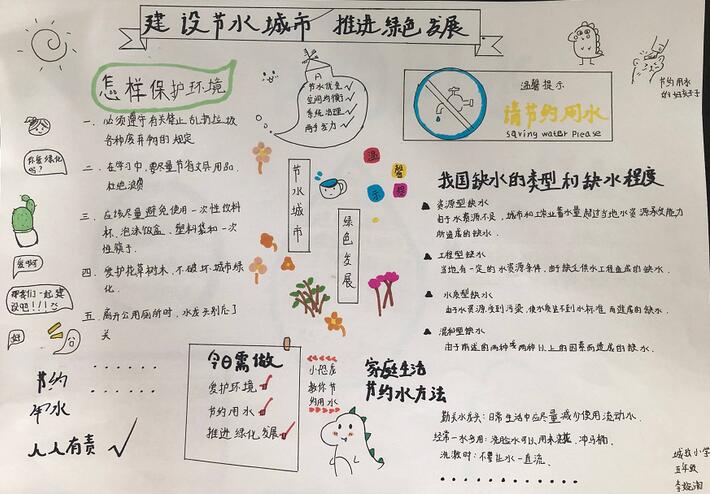 建设节水城市 推进绿色发展
怎样保护环境
一、必须遵守有关禁止乱扔垃圾
各种废弃物的规定
二、在学习中,要尽量节省文具用品,
杜绝浪费
三、应该尽量避免使用一次性饮料
杯、泡沫饭盒、塑料袋和一次
性筷子.
四、爱护花草树木,不破坏城市绿
化.
五、离开公用厕所时,水龙头别忘了
关
节水优先
空间均衡
系统治理
两手发力
温馨提示
请节约用水
saving water Please
节约用水
你爱绿化
吗?
爱啊
那我们一起建
设吧!!!
好
节水城市
绿色发展
温
馨
提
我国缺水的类型和缺水程度
资源型缺水
由于水资源不足,城市和工农业蓄水量超过当地水资源承受能力
所造成的缺水.
工程型缺水
当地有一定的水资源条件,由于缺乏供水工程造成的缺水.
水质型缺水
由于水资源受到污染,使水质达不到水标准而造成的缺水.
混和型缺水
由于前述的两种或两种以上的因素而造成的缺水.
今日需做
爱护环境
节约用水
推进绿化发展
小恐龙
教你节
约用水
家庭生活
节约水方法
勤关水龙头:日常生活中应尽量减少使用流动水.
经常一水多用:洗脸水可以用来 冲马桶.
洗漱时:不要让水一直流.
节约
用水
人人有责
城效小学
五年级